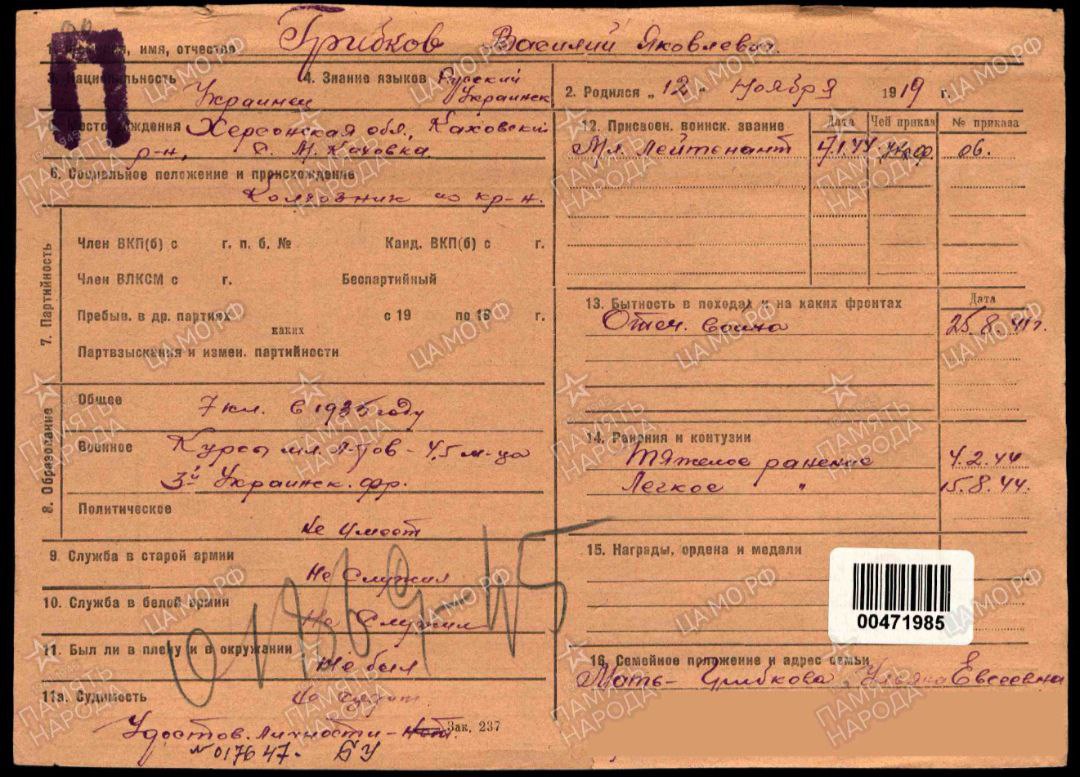 П
имя, отчество Грибков Василий Яковлевич.
3. Национальность Украинец 4. Знание языков Русский
Украинск
2. Родился „12" Ноября 1919 г.
рождения Херсонская обл., Каховский
р-н, с. М. Каховка.
6. Социальное положение и происхождение
Колхозник из кр-н.
7. Партийность
Член ВКП(б) с г. п. б. № Канд. ВКП(б) с г.
Член ВЛКСМ с г. Беспартийный
Пребыв. в др. партиях с 19 по 19 г.
каких
Партвзыскания и измен. партийности
8. Образование
Общее 7 кл. в 1935 году
Военное Курсы мл. л-тов - 4,5 м-ца
3й Украинск. фр.
Политическое
Не имеет
9. Служба в старой армии
Не служил
10. Служба в белой армии
Не служил
11. Был ли в плену и в окружении
Не был
11а. Судимость Не судим
Удостов. личности - Нет.
№ 017647. БУ
Зак. 237
12. Присвоен. воинск. звание Дата Чей приказ № приказа
Мл. Лейтенант 06.
13. Бытность в походах и на каких фронтах Дата
Отеч. война 25.8.41г.
14. Ранения и контузии
Тяжелое ранение 4.2.44
Легкое " 15.8.44.
15. Награды, ордена и медали
00471985
16. Семейное положение и адрес семьи
Мать - Грибкова Ульяна Евсеевна
ПАМЯТЬ НАРОДА
ЦАМО.РФ